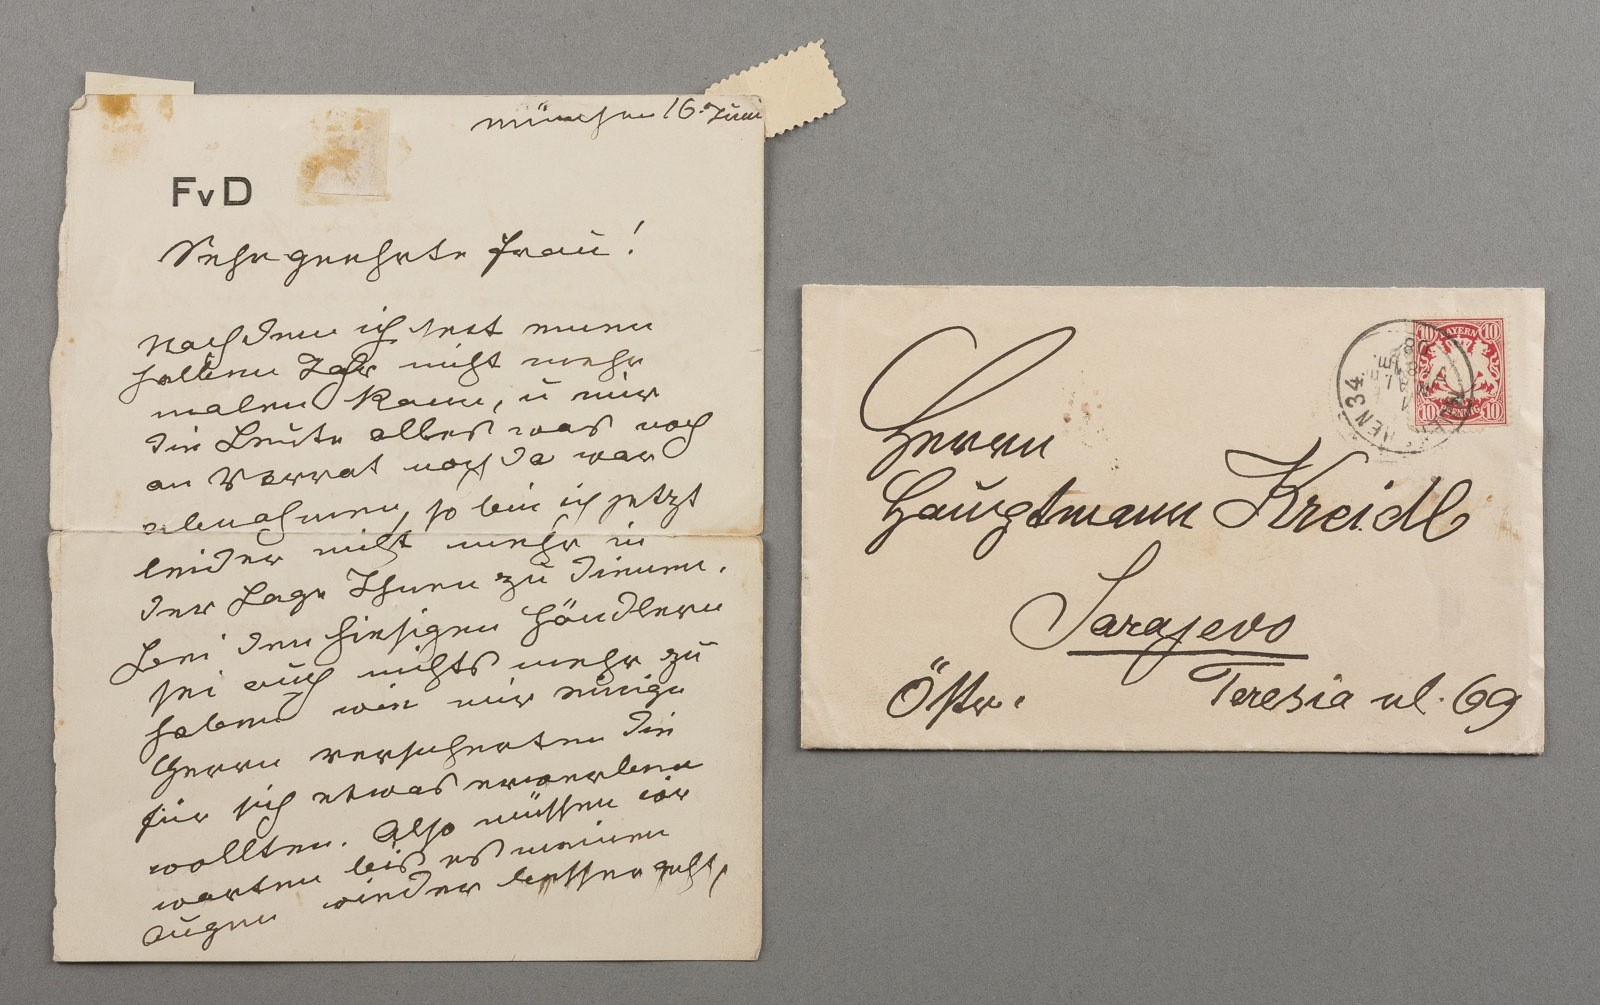 München 16. Juni
FvD
Sehr geehrte Frau!
Nachdem ich seit einem
halben Jahr nicht mehr
malen kann, u mir
die Leute alles was noch
an Vorrat noch da war
abnahmen, so bin ich jetzt
leider nicht mehr in
der Lage Ihnen zu dienen.
Bei den hiesigen Händlern
sei auch nichts mehr zu
haben wie mir einige
Herrn versicherten die
für sich etwas erwerben
wollten. Also müssen wir
warten bis es meinen
Augen wieder besser geht,
BAYERN
10 10
10 PFENNIG 10
NEN 34.
Herrn
Hauptmann Kreidl
Sarajevo
Östr.
Teresia ul. 69